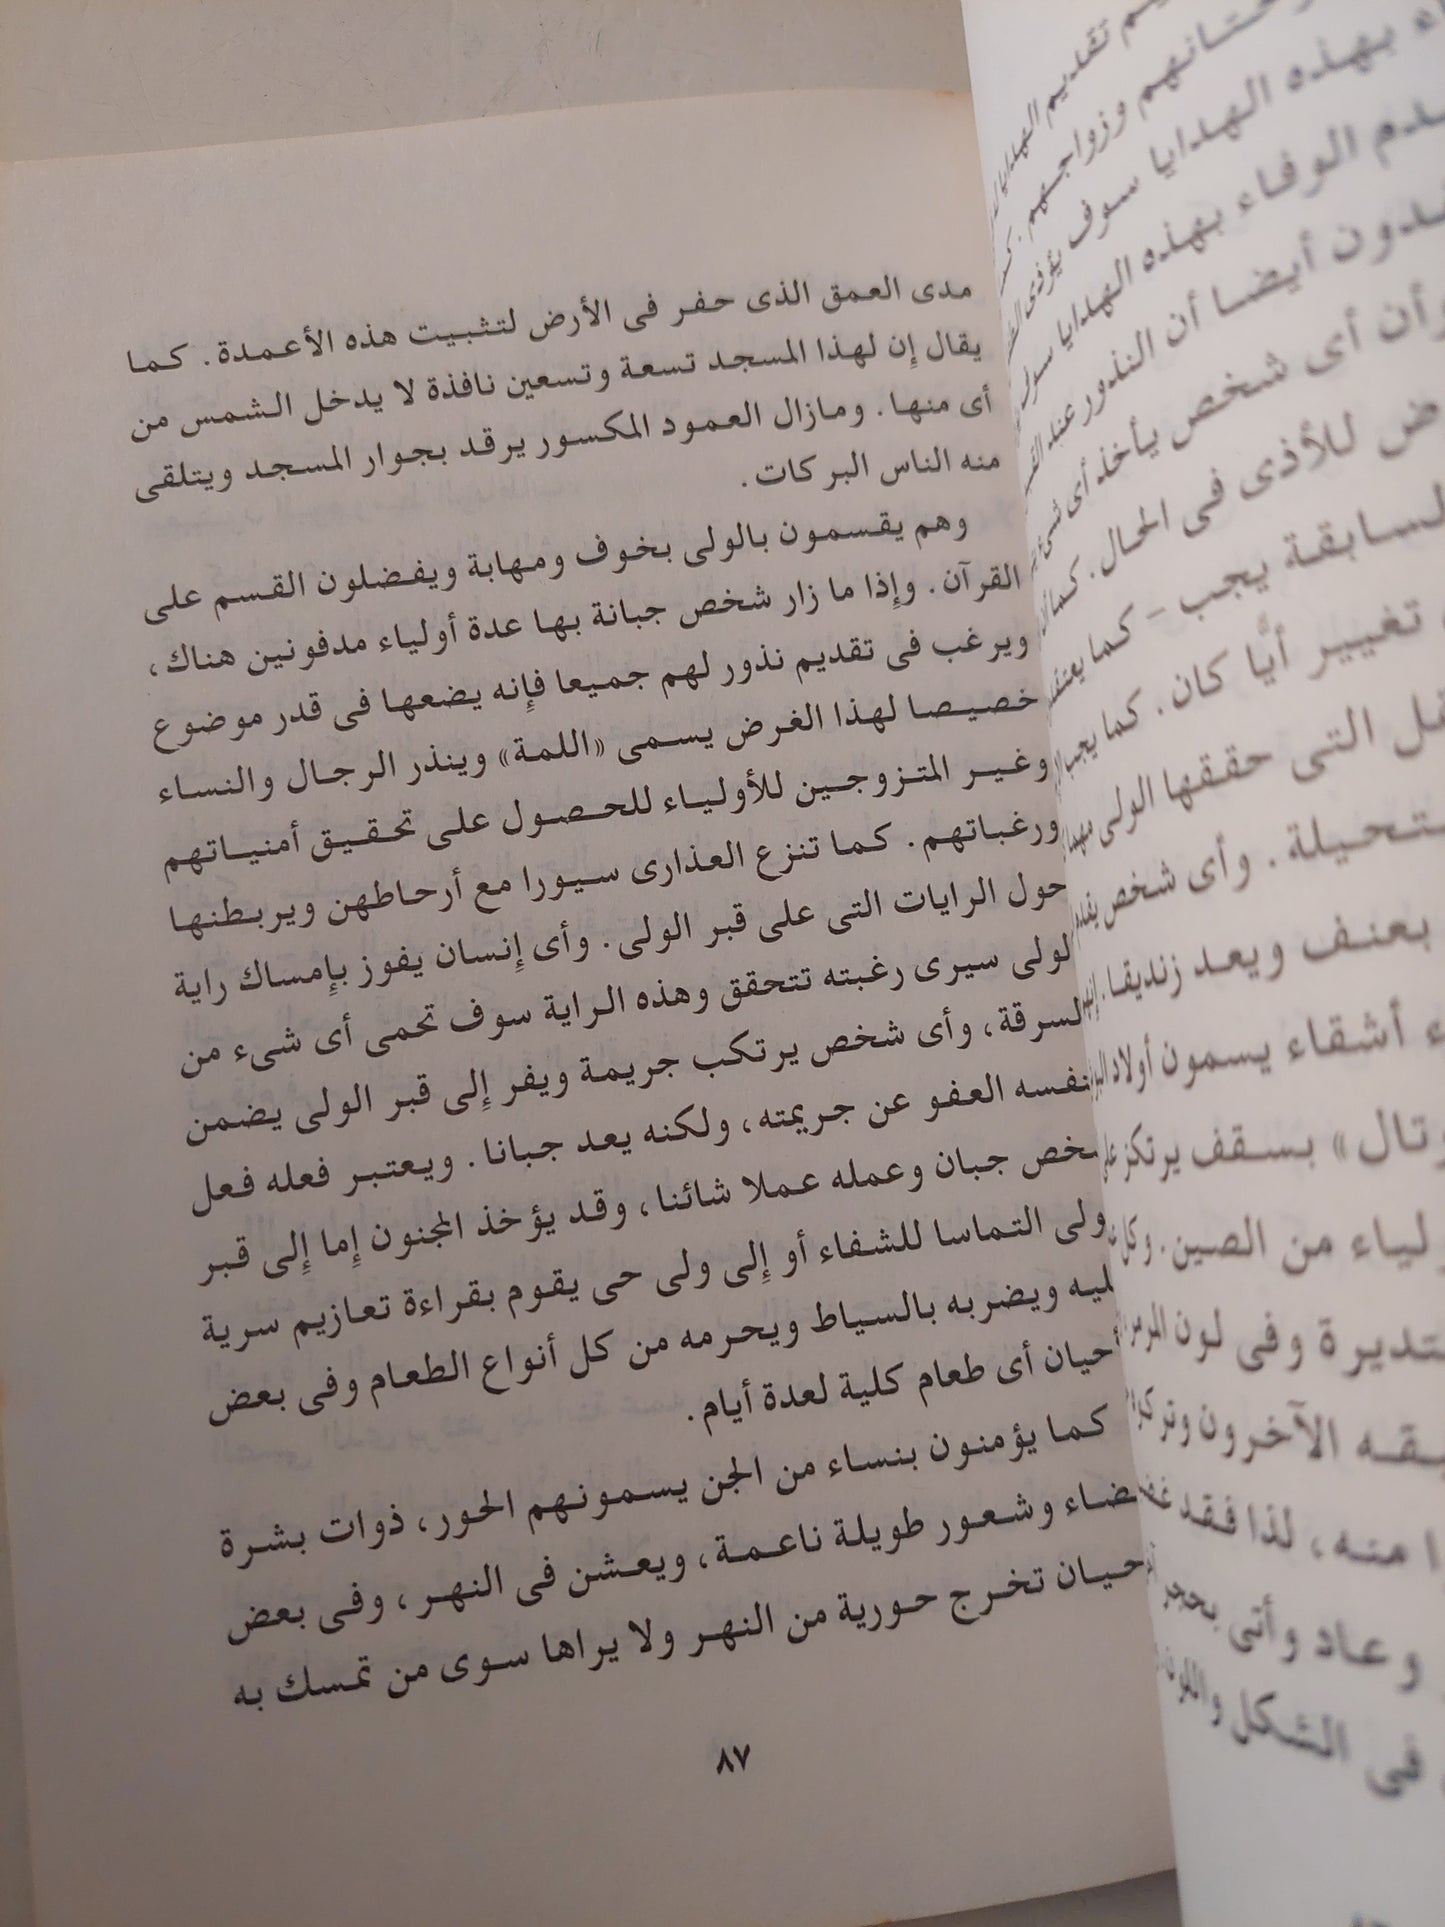 مدى العمق الذى حفر فى الأرض لتثبيت هذه الأعمدة. كما
يقال إن لهذا المسجد تسعة وتسعين نافذة لا يدخل الشمس من
أى منها. ومازال العمود المكسور يرقد بجوار المسجد ويتلقى
منه الناس البركات.
وهم يقسمون بالولى بخوف ومهابة ويفضلون القسم على
القرآن. وإذا ما زار شخص جبانة بها عدة أولياء مدفونين هناك،
ويرغب فى تقديم نذور لهم جميعا فإنه يضعها فى قدر موضوع
خصيصا لهذا الغرض يسمى «اللمة» وينذر الرجال والنساء
وغير المتزوجين للأولياء للحصول على تحقيق أمنياتهم
ورغباتهم. كما تنزع العذارى سيورا مع أرحاطهن ويربطنها
حول الرايات التى على قبر الولى. وأى إنسان يفوز بإمساك راية
لولى سيرى رغبته تتحقق وهذه الراية سوف تحمى أى شىء من
لسرقة، وأى شخص يرتكب جريمة ويفر إلى قبر الولى يضمن
نفسه العفو عن جريمته، ولكنه يعد جبانا. ويعتبر فعله فعل
خص جبان وعمله عملا شائنا، وقد يؤخذ المجنون إما إلى قبر
ولى التماسا للشفاء أو إلى ولى حى يقوم بقراءة تعازيم سرية
ليه ويضربه بالسياط ويحرمه من كل أنواع الطعام وفى بعض
حيان أى طعام كلية لعدة أيام.
كما يؤمنون بنساء من الجن يسمونهم الحور، ذوات بشرة
ضاء وشعور طويلة ناعمة، ويعشن فى النهر، وفى بعض
حيان تخرج حورية من النهر ولا يراها سوى من تمسك به
٨٧
تقديم الهدايا
وزواجهم.
بهذه الهدايا سوف يؤدى
الوفاء بهذه الهدايا
أيضا أن النذور عند
وأن أى شخص يأخذ أى شىء
للأذى فى الحال. كما
السابقة يجب - كما يعتقد
تغيير أيًّا كان. كما يجب
التى حققها الولى
وأى شخص يقدم
بعنف ويعد زنديقا. إنهم
أشقاء يسمون أولاد
» بسقف يرتكز على
من الصين. وكل
وفى لون المرمر
الآخرون وتركوا
منه، لذا فقد
وعاد وأتى بحجر
فى الشكل واللون